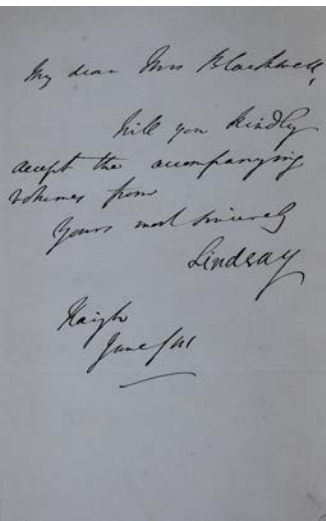 My dear Mrs Blackwell,
Will you kindly
accept the accompanying
volumes from
Yours most sincerely
Lindsay
Haigh
June /41